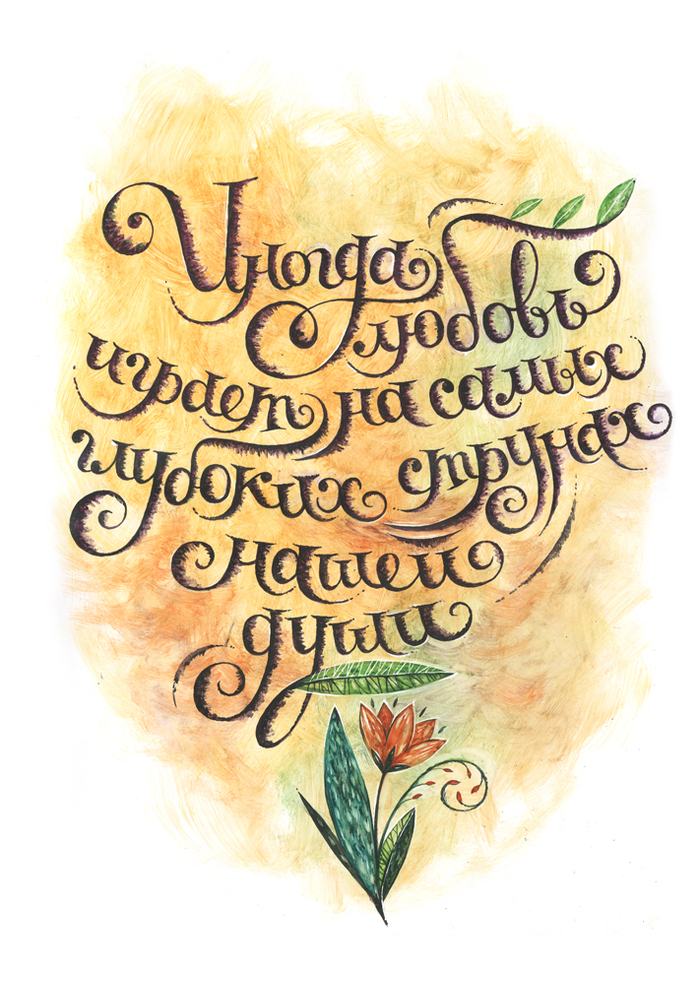 Иногда
любовь
играет на самых
глубоких струнах
нашей
души